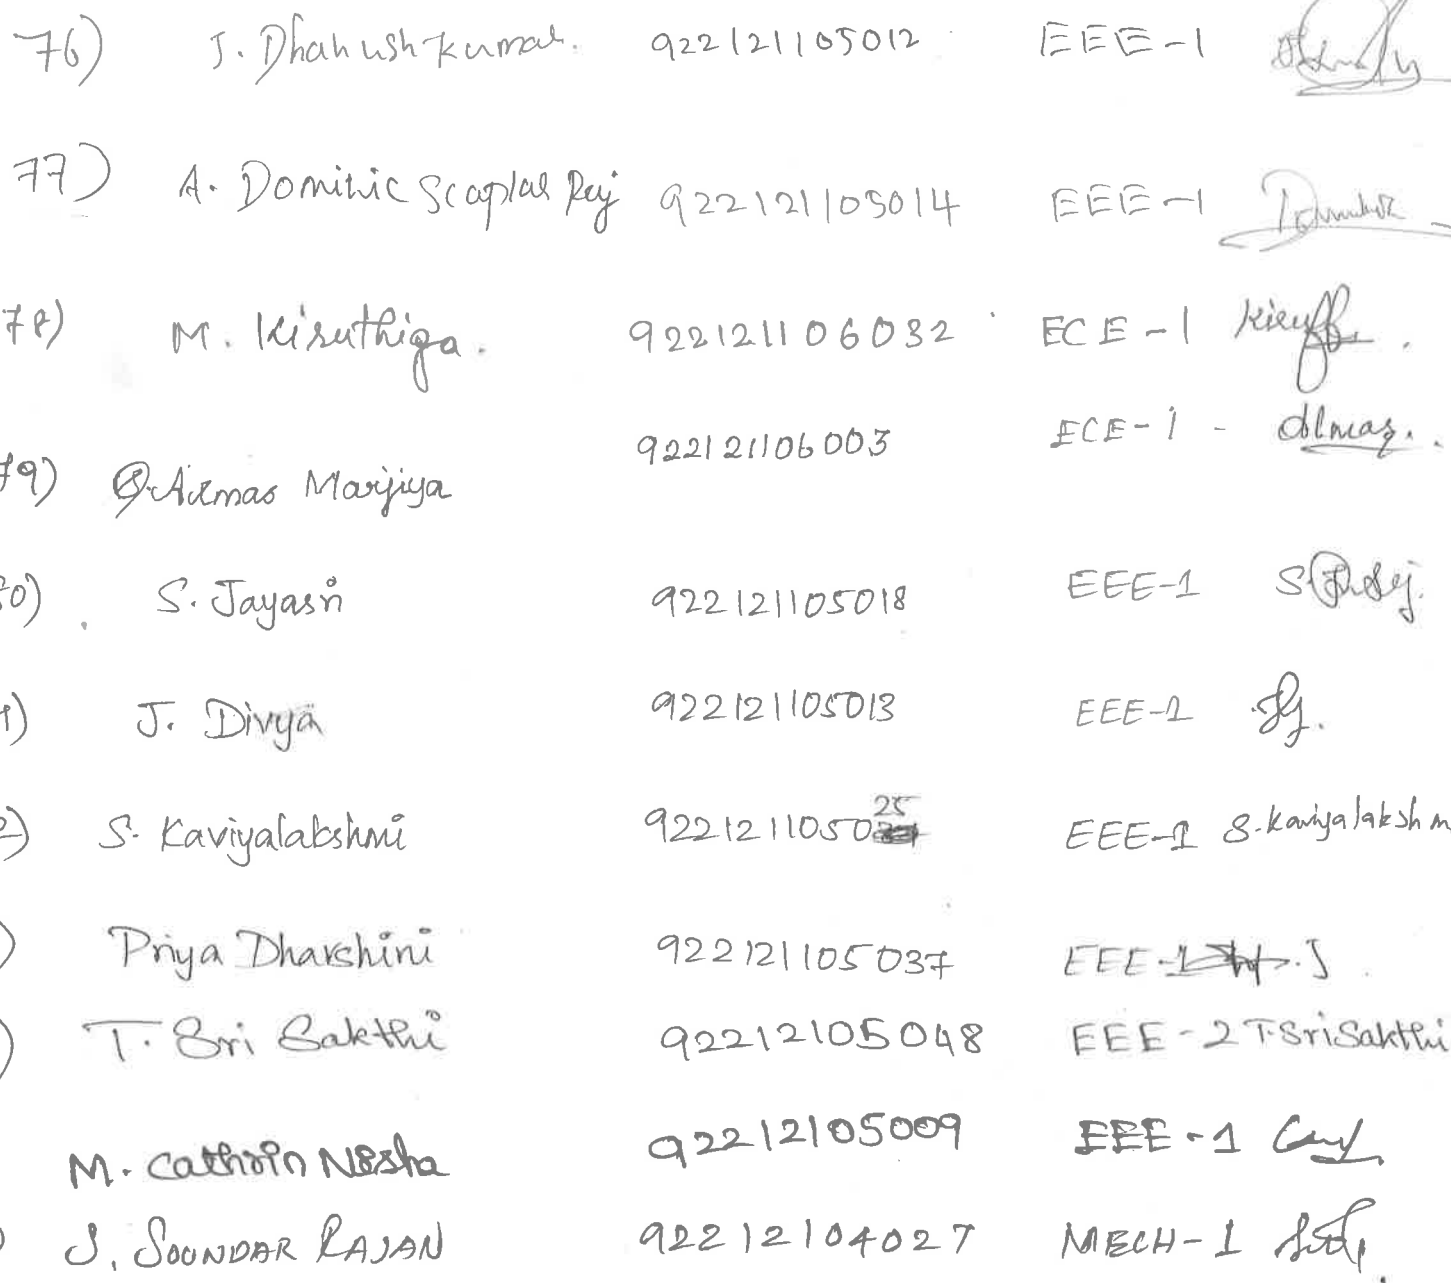 76) J. Dhanushkumar. 922121105012 EEE-1
77) A. Dominic Scaplar Raj 922121105014 EEE-1
78) M. Kiruthiga. 922121106032 ECE-1
79) Almas Marjiya 922121106003 ECE-1 - Almas.
80) S. Jayasri 922121105018 EEE-1
1) J. Divya 922121105013 EEE-1
2) S. Kaviyalakshmi 922121105025 EEE-1 S. Kaviyalakshm
) Priya Dharshini 922121105037 EEE-1
) T. Sri Sakthi 92212105048 EEE-2 T. Sri Sakthi
M. Cathrin Nisha 92212105009 EEE-1
J. SOUNDAR RAJAN 92212104027 MECH-1